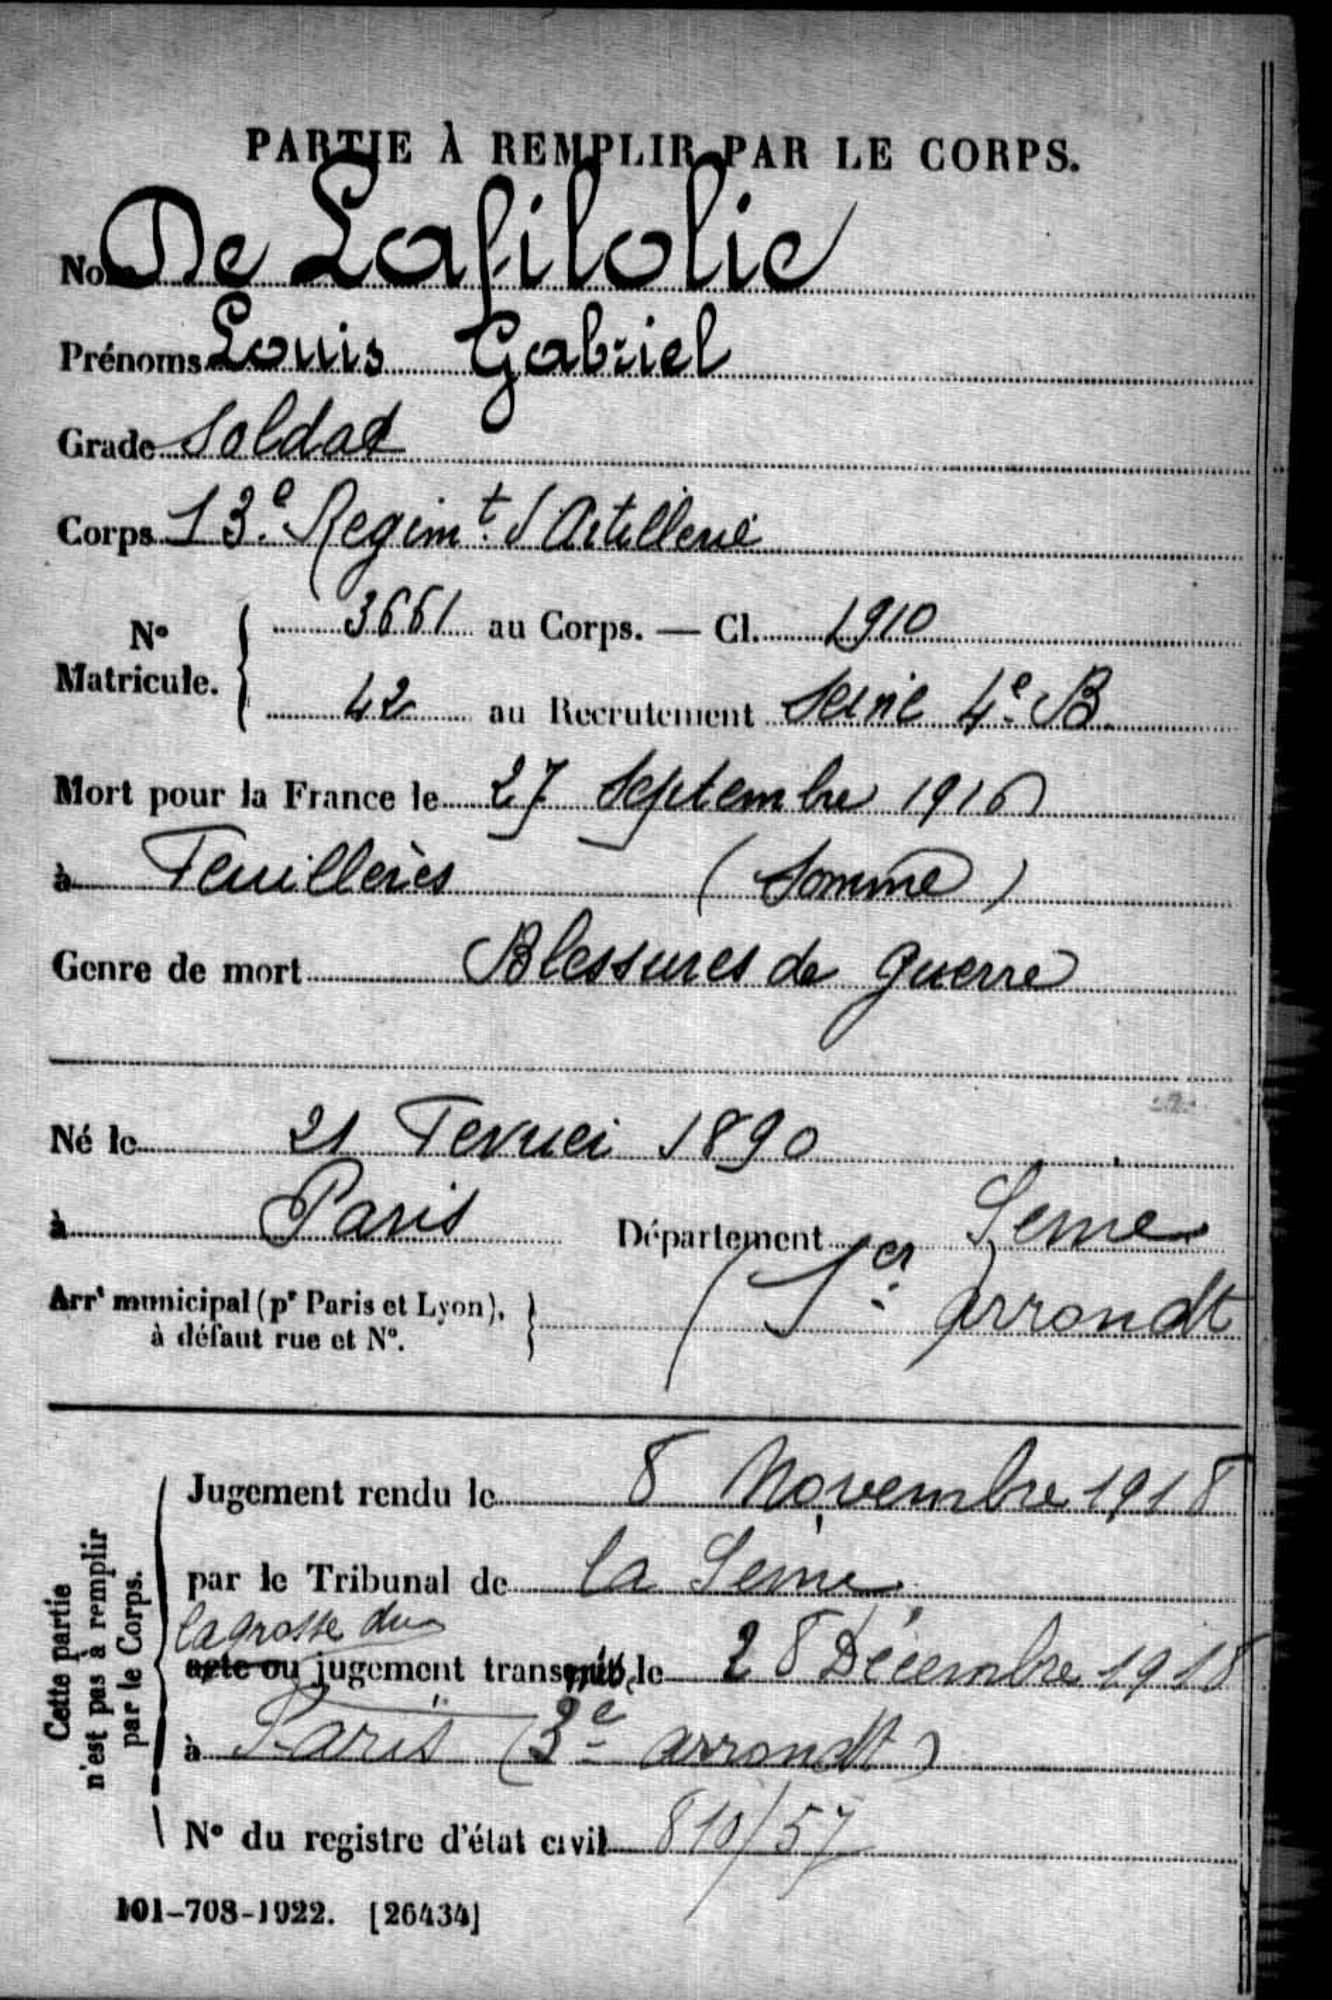 PARTIE À REMPLIR PAR LE CORPS.
Nom De Lafilolie
Prénoms Louis Gabriel
Grade Soldat
Corps 13e. Regimt. d'Artillerie
No Matricule. { 3661 au Corps. — Cl. 1910
42 au Recrutement Seine 4e B.
Mort pour la France le 27 Septembre 1916
à Feuillères (Somme)
Genre de mort Blessures de guerre
Né le 21 Fevrier 1890
à Paris Département Seine
Arrt municipal (pr Paris et Lyon), à défaut rue et No. } (1er arrondt
Cette partie n'est pas à remplir par le Corps.
Jugement rendu le 8 Novembre 1918
par le Tribunal de la Seine
la grosse du
acte ou jugement transmis le 28 Décembre 1918
à Paris (3e arrondt)
No du registre d'état civil 810/57
101-708-1922. [26434]